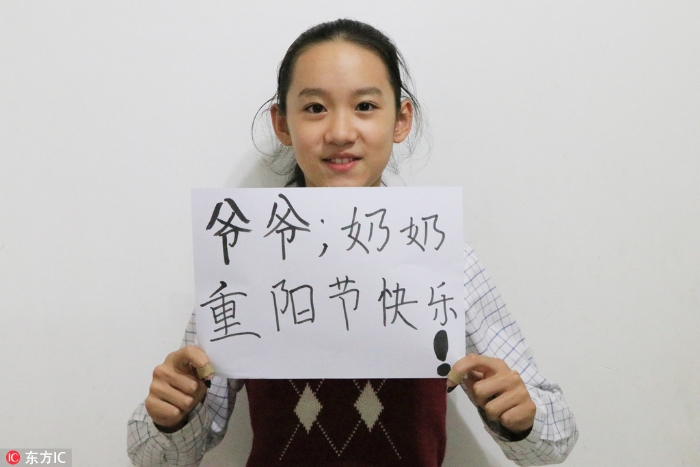 爷爷;奶奶
重阳节快乐!
IC 东方IC